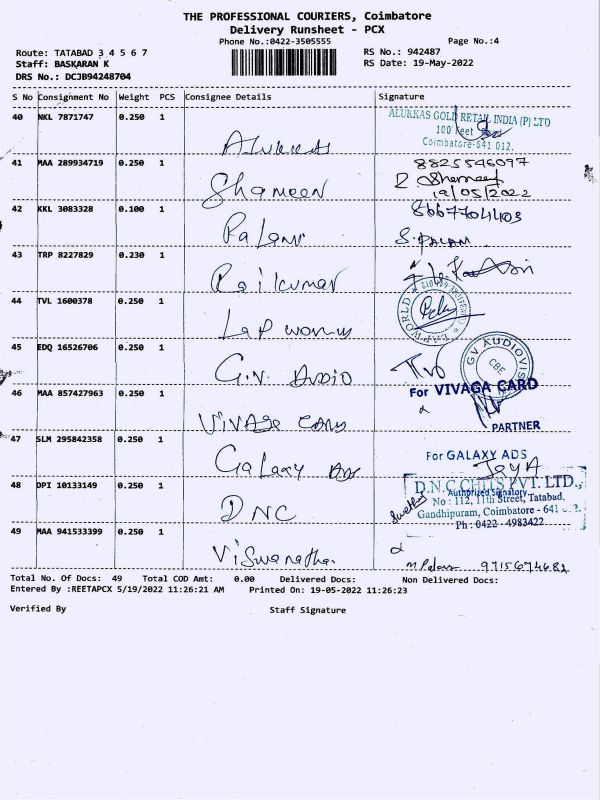 THE PROFESSIONAL COURIERS, Coimbatore
Delivery Runsheet - PCX
Phone No.:0422-3505555
Page No.:4
Route: TATABAD 3 4 5 6 7
RS No.: 942487
Staff: BASKARAN K
RS Date: 19-May-2022
DRS No.: DCJB94248704
S No Consignment No Weight PCS Consignee Details Signature
40 NKL 7871747 0.250 1
ALUKKAS GOLD RETAIL INDIA (P) LTD
100 Feet
Coimbatore-641 012.
Alukkas
41 MAA 289934719 0.250 1
8825546097
Shameen
19/05/2022
42 KKL 3083328 0.100 1
8667704403
Palani
S.PALANI
43 TRP 8227829 0.230 1
Rajkumar
44 TVL 1600378 0.250 1
LAP WORLD
Lap world
45 EDQ 16526706 0.250 1
GV AUDIOVIS
CBE
G.V. Audio
46 MAA 857427963 0.250 1
For VIVAGA CARD
Vivaga Cards
PARTNER
47 SLM 295842358 0.250 1
For GALAXY ADS
JAYA
Galaxy Ads
Authorized Signatory
48 DPI 10133149 0.250 1
D.N.C CHITS PVT. LTD.,
No : 112, 11th Street, Tatabad,
Gandhipuram, Coimbatore - 641
Ph : 0422 - 4983422
DNC
49 MAA 941533399 0.250 1
Viswanathan
9715674682
Total No. Of Docs: 49 Total COD Amt: 0.00 Delivered Docs: Non Delivered Docs:
Entered By :REETAPCX 5/19/2022 11:26:21 AM Printed On: 19-05-2022 11:26:23
Verified By Staff Signature